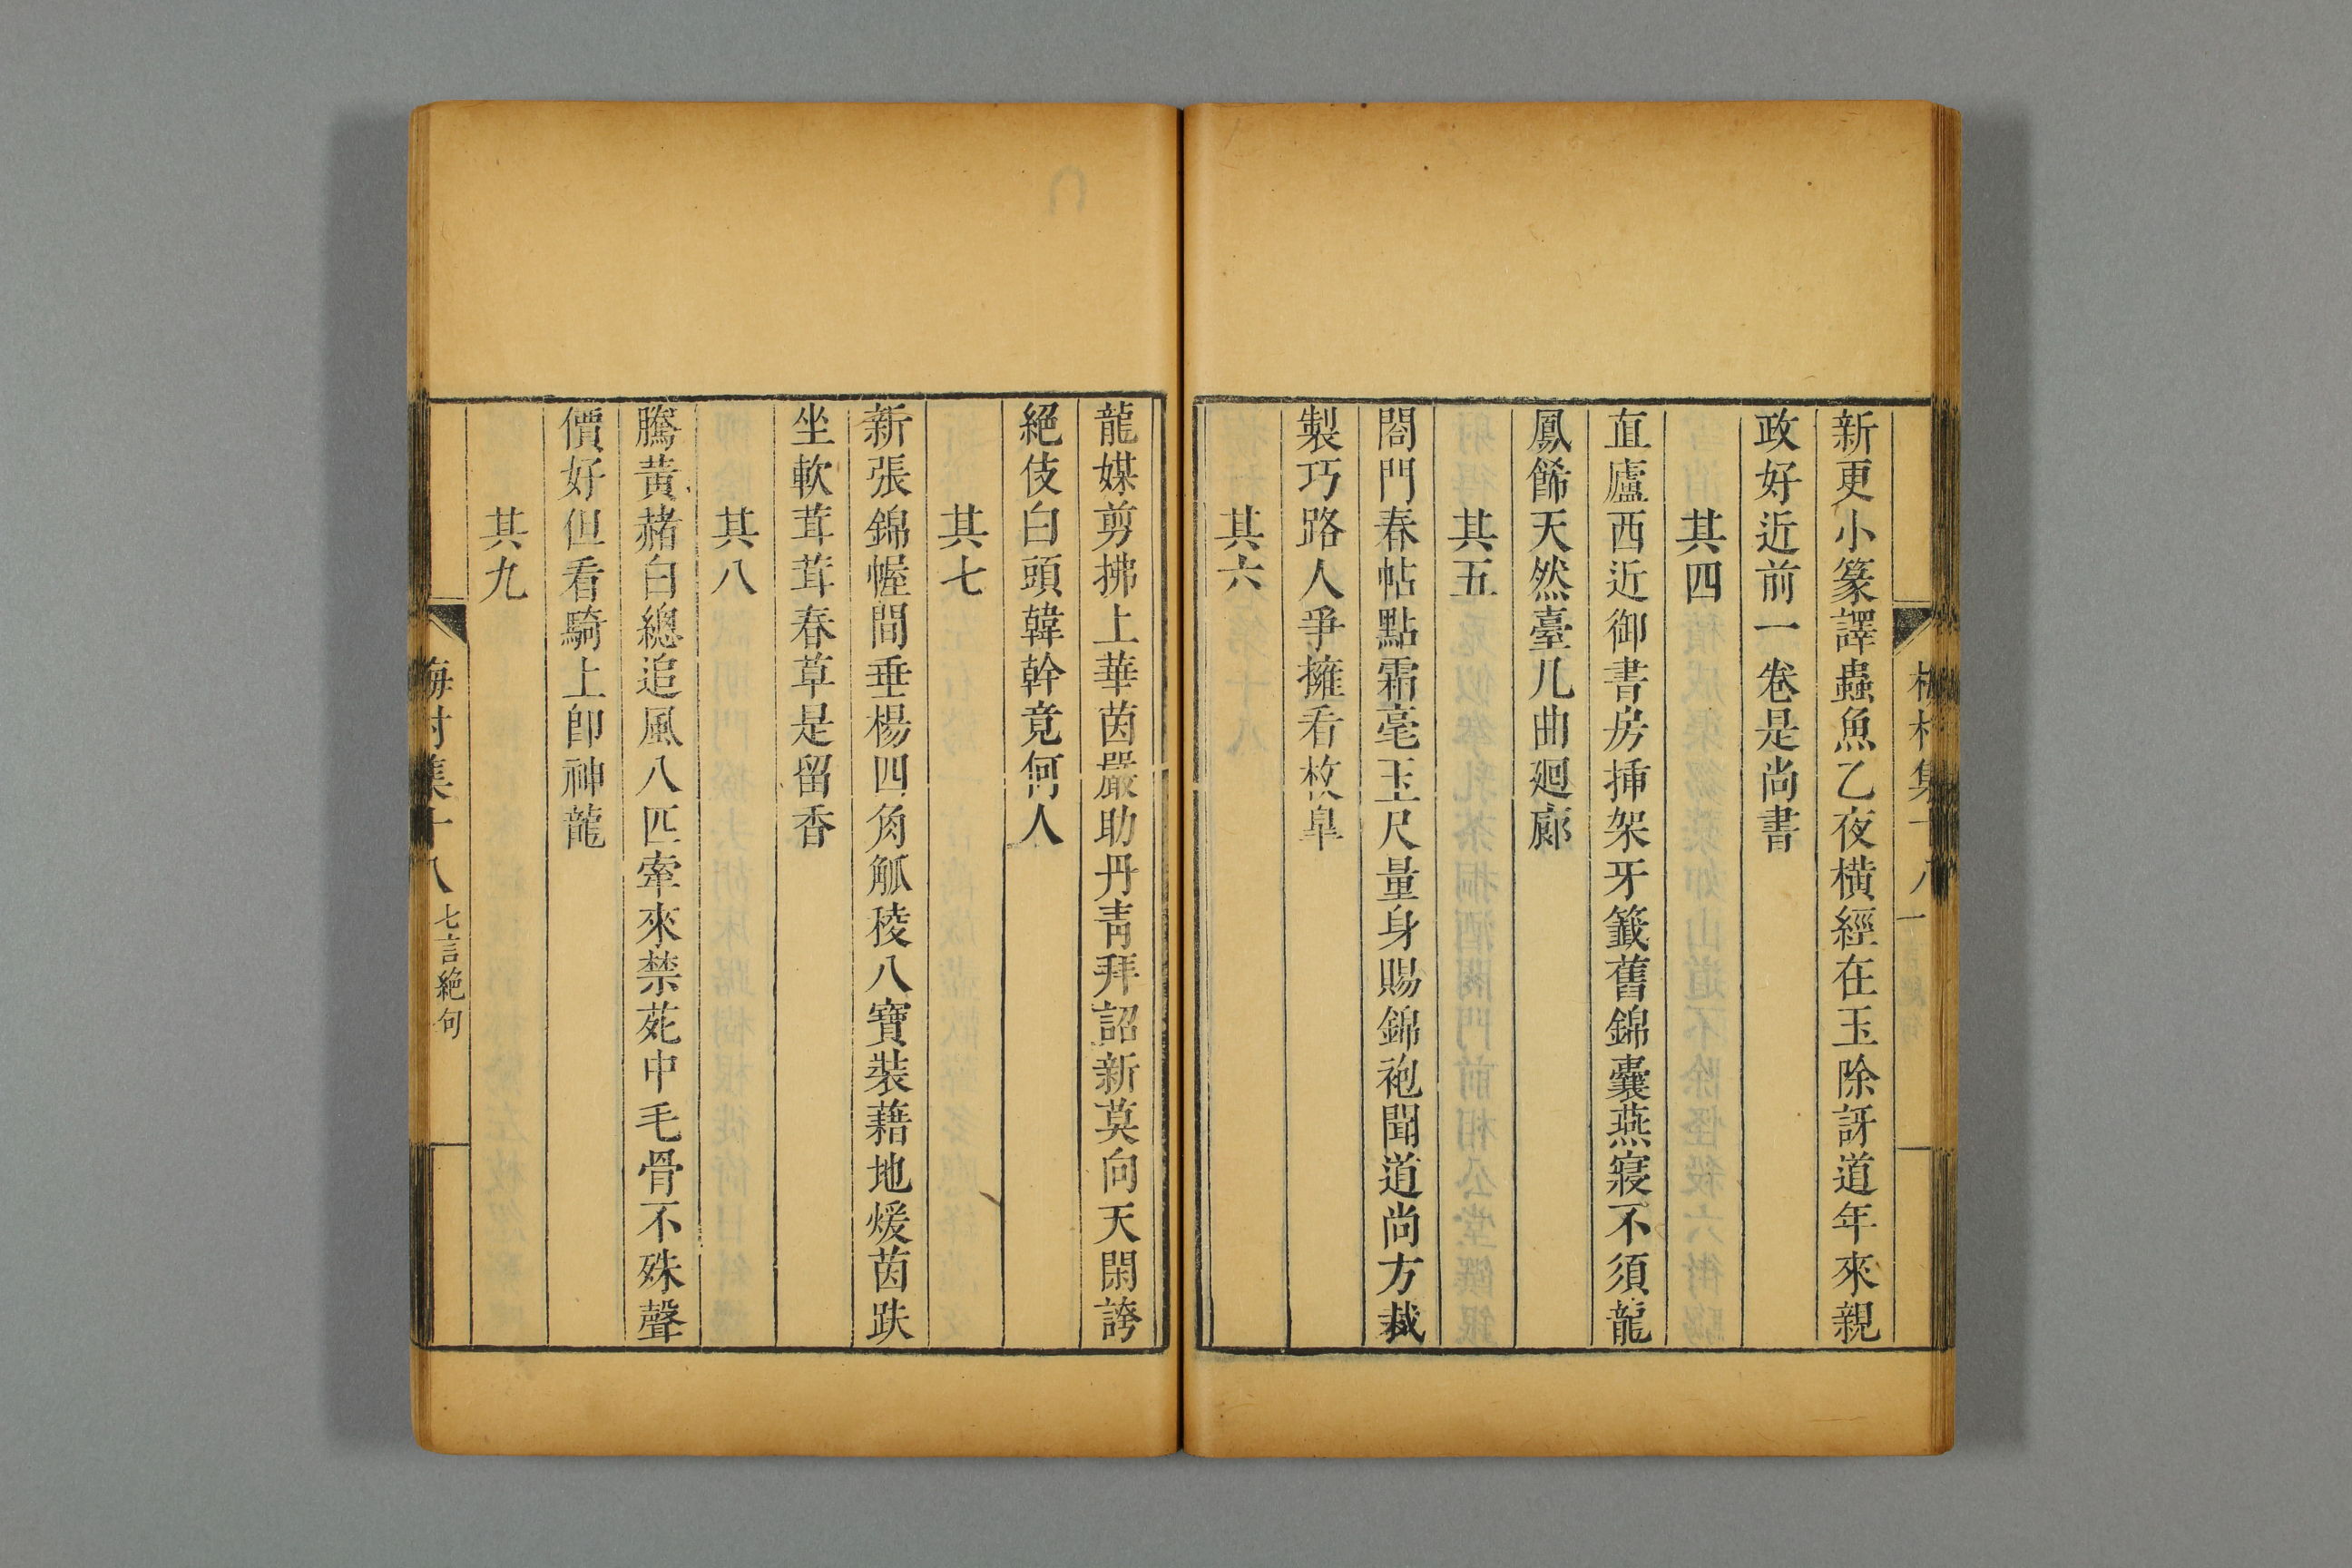 梅村集十八
一
新更小篆譯蟲魚乙夜橫經在玉除訝道年來親
政好近前一卷是尚書
其四
直廬西近御書房揷架牙籤舊錦囊燕寢不須龍
鳳餙天然臺几曲廻廊
其五
閤門春帖點霜毫玉尺量身賜錦袍聞道尚方裁
製巧路人爭擁看枚皐
其六
龍媒剪拂上華茵嚴助丹青拜詔新莫向天閑誇
絕伎白頭韓幹竟何人
其七
新張錦幄間垂楊四角觚稜八寶裝藉地煖茵趺
坐軟茸茸春草是留香
其八
騰黃赭白總追風八匹牽來禁苑中毛骨不殊聲
價好但看騎上即神龍
其九
梅村集十八
七言絕句